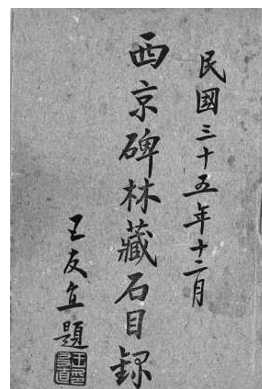 民國三十五年十二月
西京碑林藏石目録
王友直題